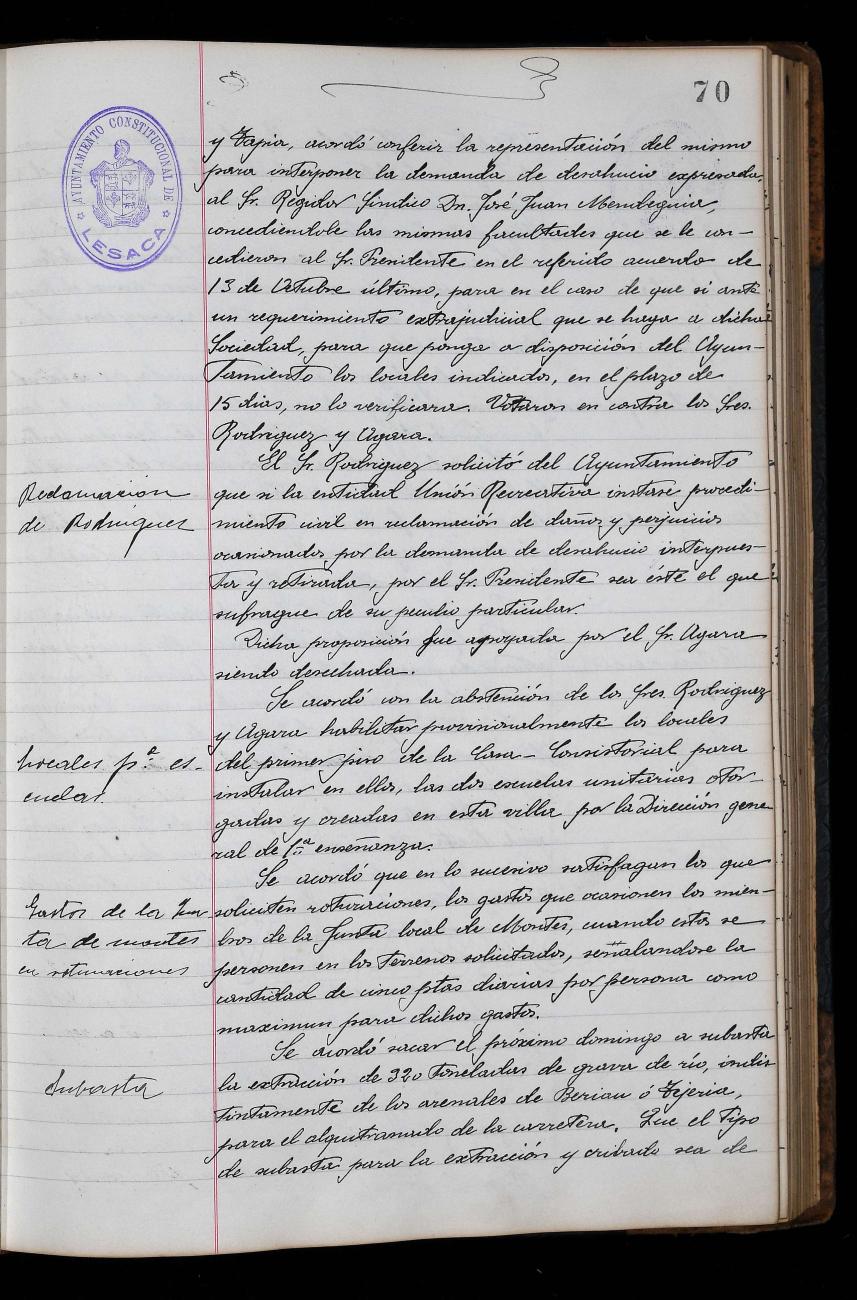 70
AYUNTAMIENTO CONSTITUCIONAL DE
LESACA
y Tapia, acordó conferir la representación del mismo
para interponer la demanda de desahucio expresada,
al Sr. Regidor Síndico Dn. José Juan Mendeguia,
concediendole las mismas facultades que se le con-
cedieron al Sr. Presidente en el referido acuerdo de
13 de Octubre último, para en el caso de que si ante
un requerimiento extrajudicial que se haga a dicha
Sociedad, para que ponga a disposición del Ayun-
tamiento los locales indicados, en el plazo de
15 dias, no lo verificara. Votaron en contra los Sres.
Rodriguez y Agara.
El Sr. Rodriguez solicitó del Ayuntamiento
Reclamación
de Rodriguez
que si la entidad Unión Recreativa instase procedi-
miento civil en reclamación de daños y perjuicios
ocasionados por la demanda de desahucio interpues-
ta y retirada, por el Sr. Presidente sea éste el que
sufrague de su peculio particular.
Dicha proposición fue apoyada por el Sr. Agara
siendo desechada.
Se acordó con la abstención de los Sres. Rodriguez
y Agara habilitar provisionalmente los locales
Locales pª. es-
cuelas.
del primer piso de la Casa-Consistorial para
instalar en ellos, las dos escuelas unitarias otor-
gadas y creadas en esta villa por la Dirección gene
ral de 1ª enseñanza.
Se acordó que en lo sucesivo satisfagan los que
Gastos de la Jun
ta de montes
en roturaciones
soliciten roturaciones, los gastos que ocasionen los miem-
bros de la Junta local de Montes, cuando estos se
personen en los terrenos solicitados, señalandose la
cantidad de cinco ptas diarias por persona como
maximun para dichos gastos.
Se acordó sacar el próximo domingo a subasta
Subasta
la extracción de 320 toneladas de grava de río, indis
tintamente de los arenales de Beriau ó Tejeria,
para el alquitranado de la carretera. Que el tipo
de subasta para la extracción y cribado sea de